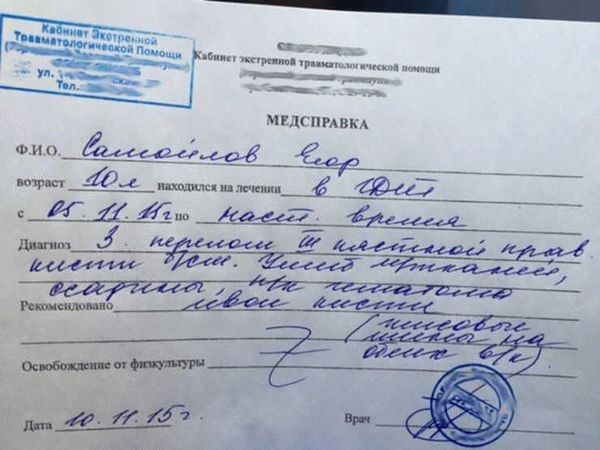 Кабинет Экстренной
Травматологической Помощи
ул.
Тел.
Кабинет экстренной травматологической помощи
МЕДСПРАВКА
Ф.И.О. Самойлов Егор
возраст 10 л находился на лечении в
с 05.11.15г по наст. время
Диагноз З. перелом III пястной прав.
кисти б/см. Ушиб мягк. тканей,
осадины, п/к гематома
Рекомендовано левой кисти
(гипсовые
шины на
обеих
Освобождение от физкультуры
Дата 10.11.15г. Врач